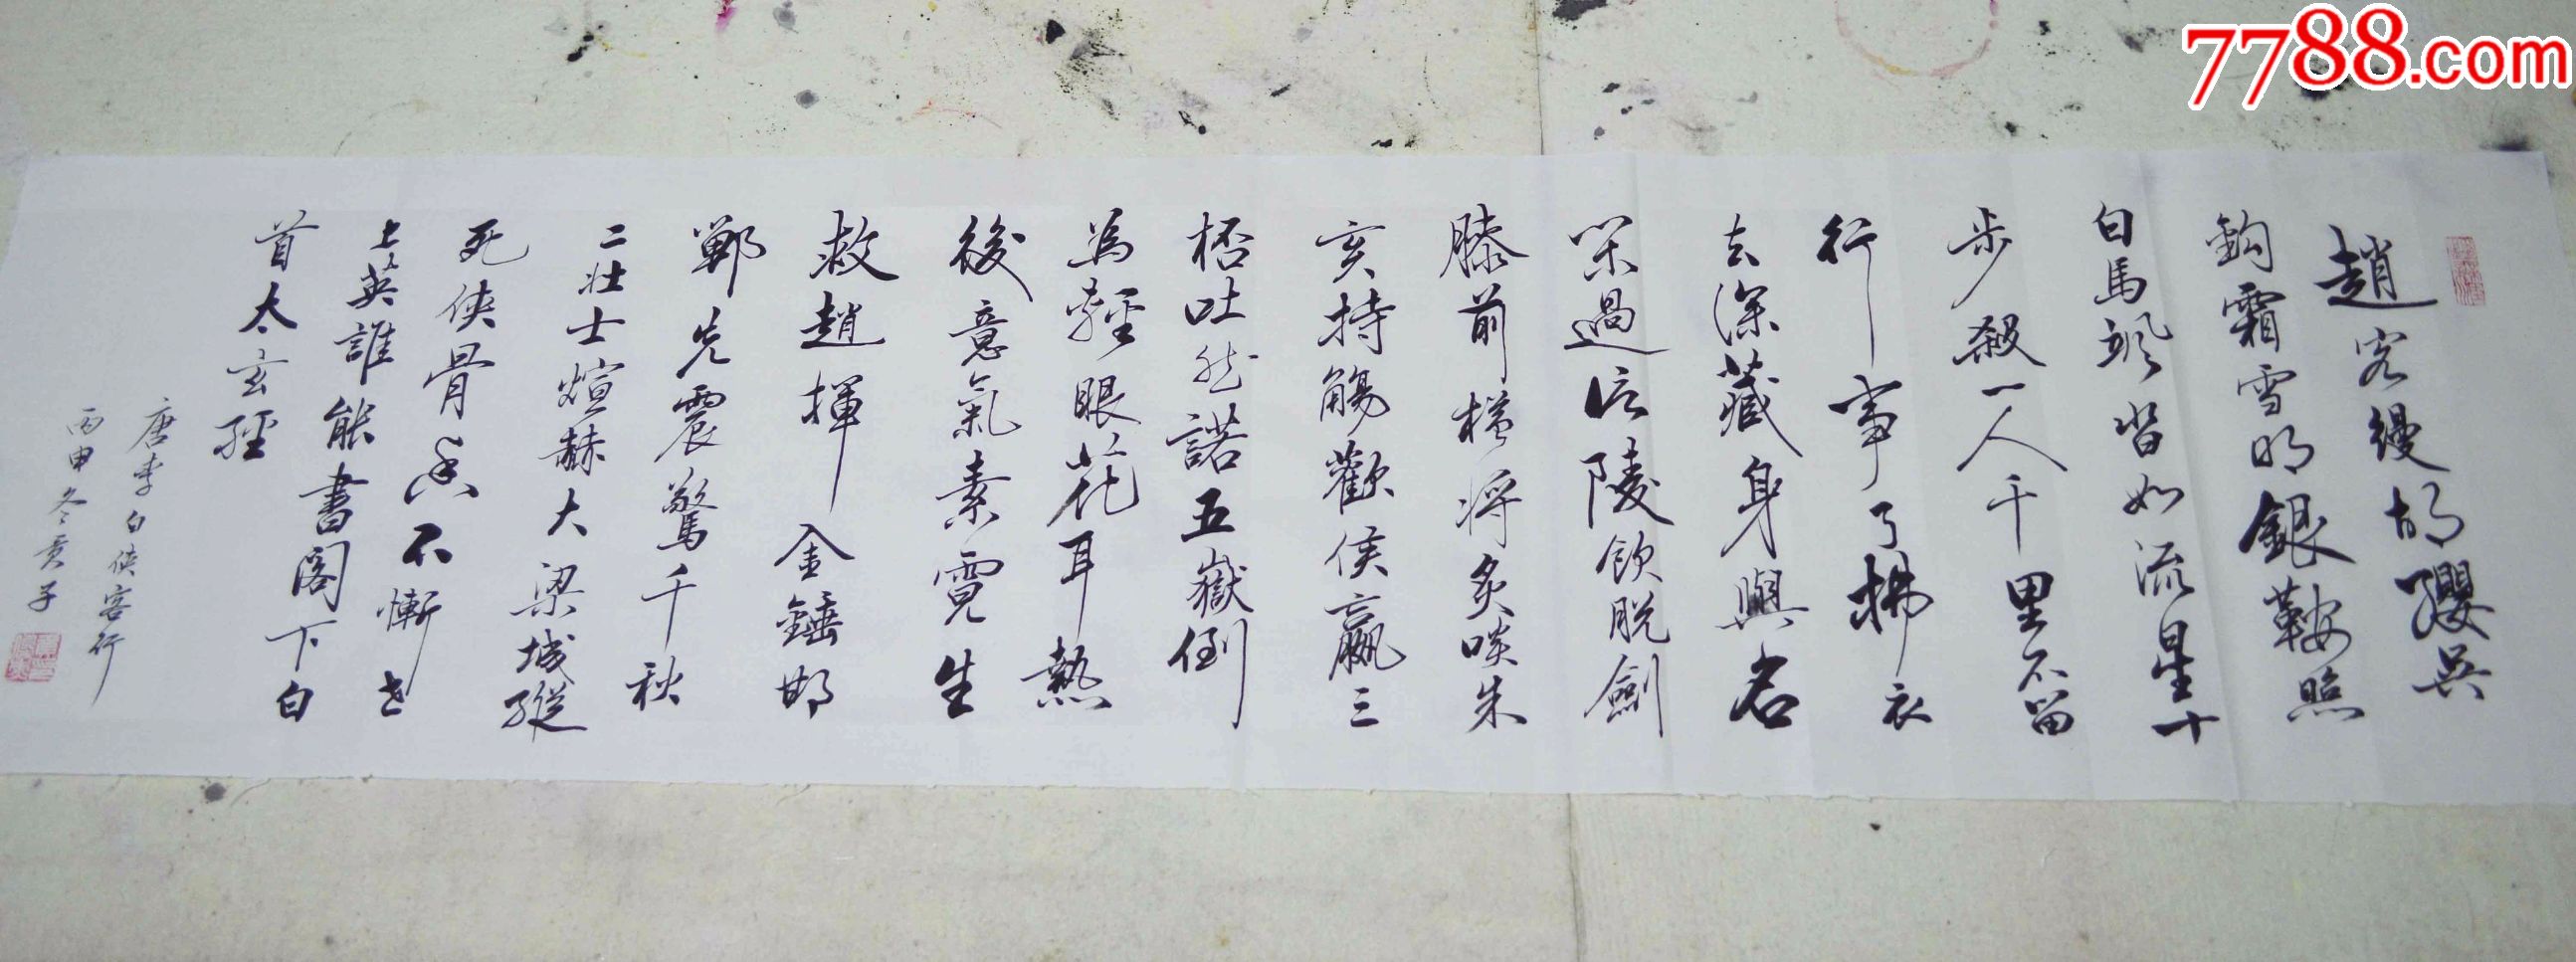 趙客縵胡纓吳
鈎霜雪明銀鞍照
白馬颯沓如流星十
步殺一人千里不留
行事了拂衣
去深藏身與名
閑過信陵飲脫劍
膝前橫將炙啖朱
亥持觴歡侯嬴三
桮吐然諾五嶽倒
為輕眼花耳熱
後意氣素霓生
救趙揮金錘邯
鄲先震驚千秋
二壯士煊赫大梁城縱
死俠骨香不慚世
上英誰能書閣下白
首太玄經
唐李白俠客行
丙申冬子
7788.com